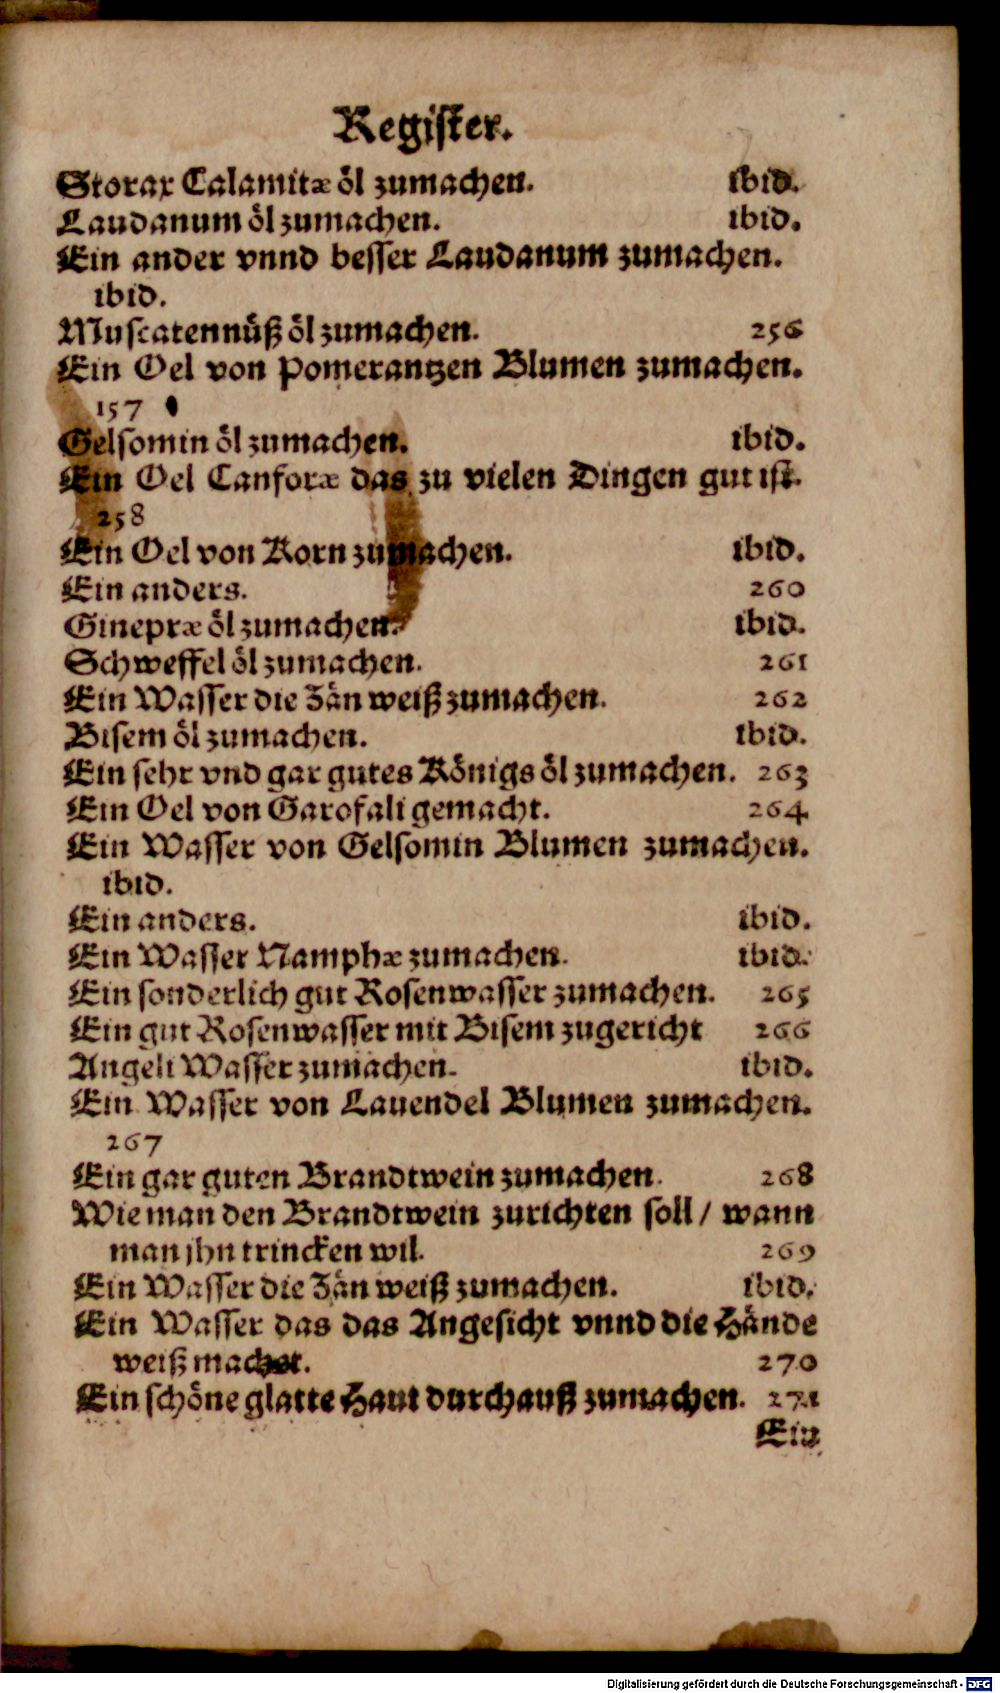 Register.
Storax Calamitæ öl zumachen. ibid.
Laudanum öl zumachen. ibid.
Ein ander vnnd besser Laudanum zumachen.
ibid.
Muscatennüß öl zumachen. 256
Ein Oel von Pomerantzen Blumen zumachen.
157
Gelsomin öl zumachen. ibid.
Ein Oel Canforæ das zu vielen Dingen gut ist.
258
Ein Oel von Korn zumachen. ibid.
Ein anders. 260
Ginepræ öl zumachen. ibid.
Schweffel öl zumachen. 261
Ein Wasser die Zän weiß zumachen. 262
Bisem öl zumachen. ibid.
Ein sehr vnd gar gutes Königs öl zumachen. 263
Ein Oel von Garofali gemacht. 264
Ein Wasser von Gelsomin Blumen zumachen.
ibid.
Ein anders. ibid.
Ein Wasser Namphæ zumachen. ibid.
Ein sonderlich gut Rosenwasser zumachen. 265
Ein gut Rosenwasser mit Bisem zugericht 266
Angeli Wasser zumachen. ibid.
Ein Wasser von Lauendel Blumen zumachen.
267
Ein gar guten Brandtwein zumachen. 268
Wie man den Brandtwein zurichten soll / wann
man jhn trincken wil. 269
Ein Wasser die Zän weiß zumachen. ibid.
Ein Wasser das das Angesicht vnnd die Hände
weiß machet. 270
Ein schöne glatte Haut durchauß zumachen. 271
Ein
Digitalisierung gefördert durch die Deutsche Forschungsgemeinschaft - DFG